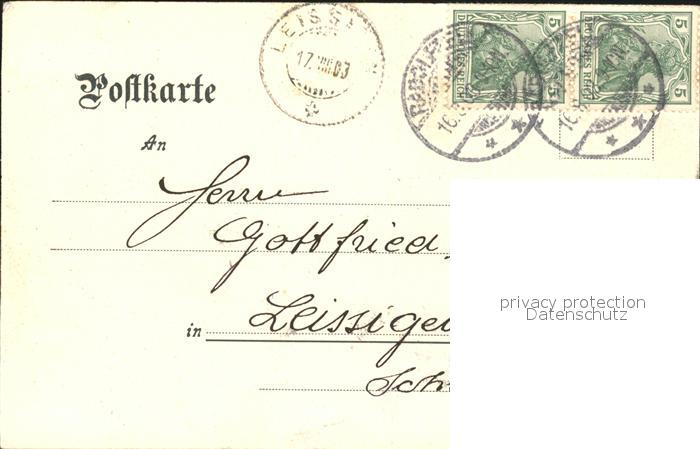 LEISSIGEN
17.VIII.03
5 5
DEUTSCHES REICH DEUTSCHES REICH
5 5
Postkarte
An
Herrn
Gottfried
in Leissigen
Sch
privacy protection
Datenschutz